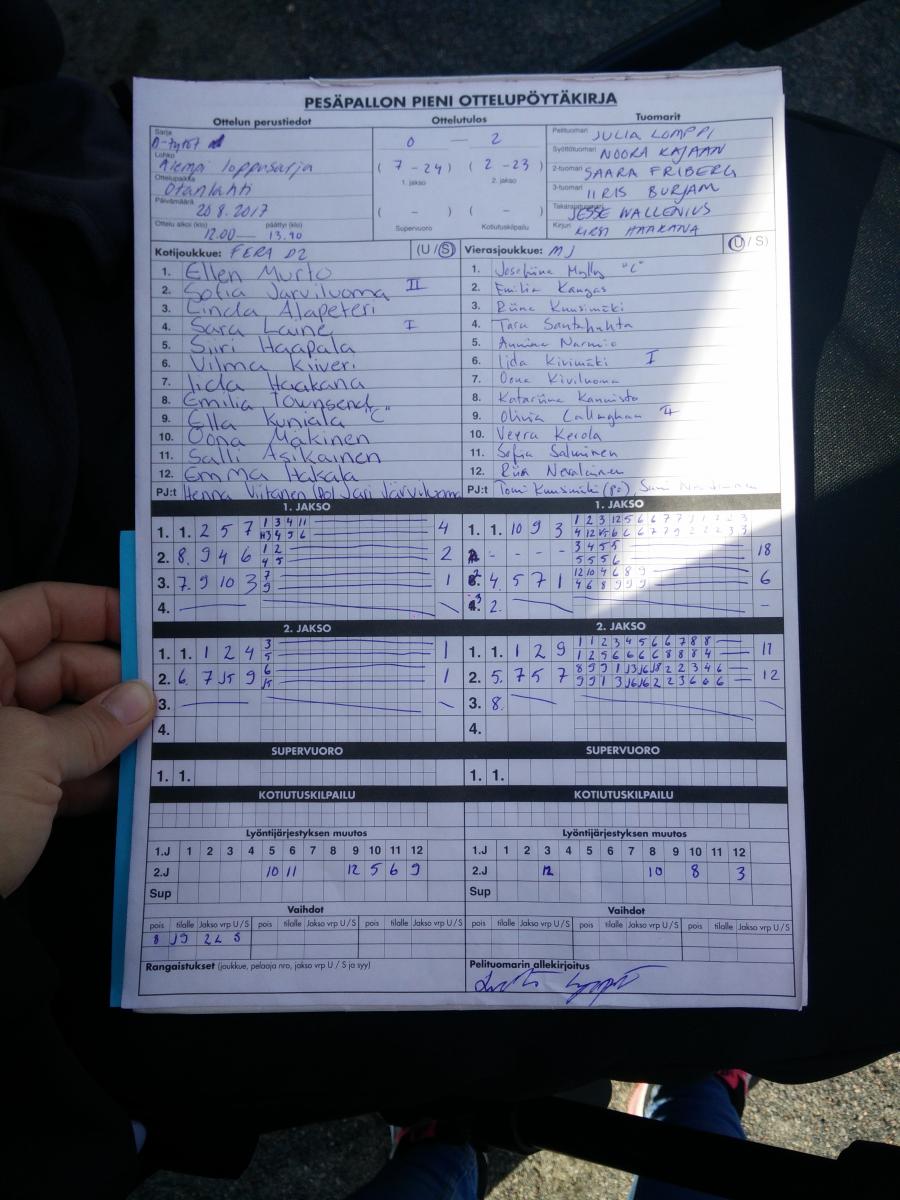 PESÄPALLON PIENI OTTELUPÖYTÄKIRJA
Ottelun perustiedot
Sarja D-tytöt
Lohko Alempi loppusarja
Ottelupaikka Otanlahti
Päivämäärä 20.8.2017
Ottelu alkoi (klo) päättyi (klo)
12.00 — 13.40
Ottelutulos
0 — 2
( 7 - 24 ) ( 2 - 23 )
1. jakso 2. jakso
( - ) ( - )
Supervuoro Kotiutuskilpailu
Tuomarit
Pelituomari JULIA LOMPPI
Syöttötuomari NOORA KAJAAN
2-tuomari SAARA FRIBERG
3-tuomari IIRIS BURJAM
Takarajatuomari JESSE WALLENIUS
Kirjuri KIRSI HAAKANA
Kotijoukkue: FERA D2 (U / S)
1. Ellen Murto
2. Sofia Järviluoma II
3. Linda Alapeteri
4. Sara Laine I
5. Siiri Haapala
6. Vilma Kiiveri
7. Iida Haakana
8. Emilia Townsend
9. Ella Kuniala "C"
10. Oona Mäkinen
11. Salli Asikainen
12. Emma Hakala
PJ:t Henna Viitanen (po) Jari Järviluoma
Vierasjoukkue: MJ (U / S)
1. Josefiina Mylly "C"
2. Emilia Kangas
3. Riina Kuusimäki
4. Taru Santahuhta
5. Anniina Narmio
6. Iida Kivimäki I
7. Oona Kiviluoma
8. Katariina Kannisto
9. Olivia Callaghan II
10. Veera Kerola
11. Sofia Salminen
12. Riia Nevalainen
PJ:t Tomi Kuusimäki (po),
1. JAKSO
1. 1. 2 5 7 1 3 4 11 4
4 5 6
2. 8. 9 4 6 1 2 2
4 5
3. 7. 9 10 3 7 1
9
4.
1. JAKSO
1. 1. 10 9 3 1 2 3 12 5 6 6 7 7
- - - - 3 4 5 5 18
5 5 5 6
4. 5 7 1 12 10 4 6 8 9 6
4 6 8 9 9 9
2. -
2. JAKSO
1. 1. 1 2 4 3 1
5
2. 6. 7 J5 9 6 1
J5
3.
4.
2. JAKSO
1. 1. 1 2 9 1 1 2 3 4 5 6 6 7 8 8 11
1 2 5 6 6 6 6 8 8 8 4
2. 5. 7 5 7 8 9 9 1 J3 J6 J8 2 2 3 4 6 12
9 9 1 3 J6 J6 2 2 3 6 6 6
3. 8.
4.
SUPERVUORO
1. 1.
SUPERVUORO
1. 1.
KOTIUTUSKILPAILU
KOTIUTUSKILPAILU
Lyöntijärjestyksen muutos
1.J 1 2 3 4 5 6 7 8 9 10 11 12
2.J 10 11 12 5 6 9
Sup
Lyöntijärjestyksen muutos
1.J 1 2 3 4 5 6 7 8 9 10 11 12
2.J 12 10 8 3
Sup
Vaihdot
pois tilalle Jakso vrp U / S pois tilalle Jakso vrp U / S pois tilalle Jakso vrp U / S
8 J5 2 L S
Vaihdot
pois tilalle Jakso vrp U / S pois tilalle Jakso vrp U / S pois tilalle Jakso vrp U / S
Rangaistukset (joukkue, pelaaja nro, jakso vrp U / S ja syy)
Pelituomarin allekirjoitus